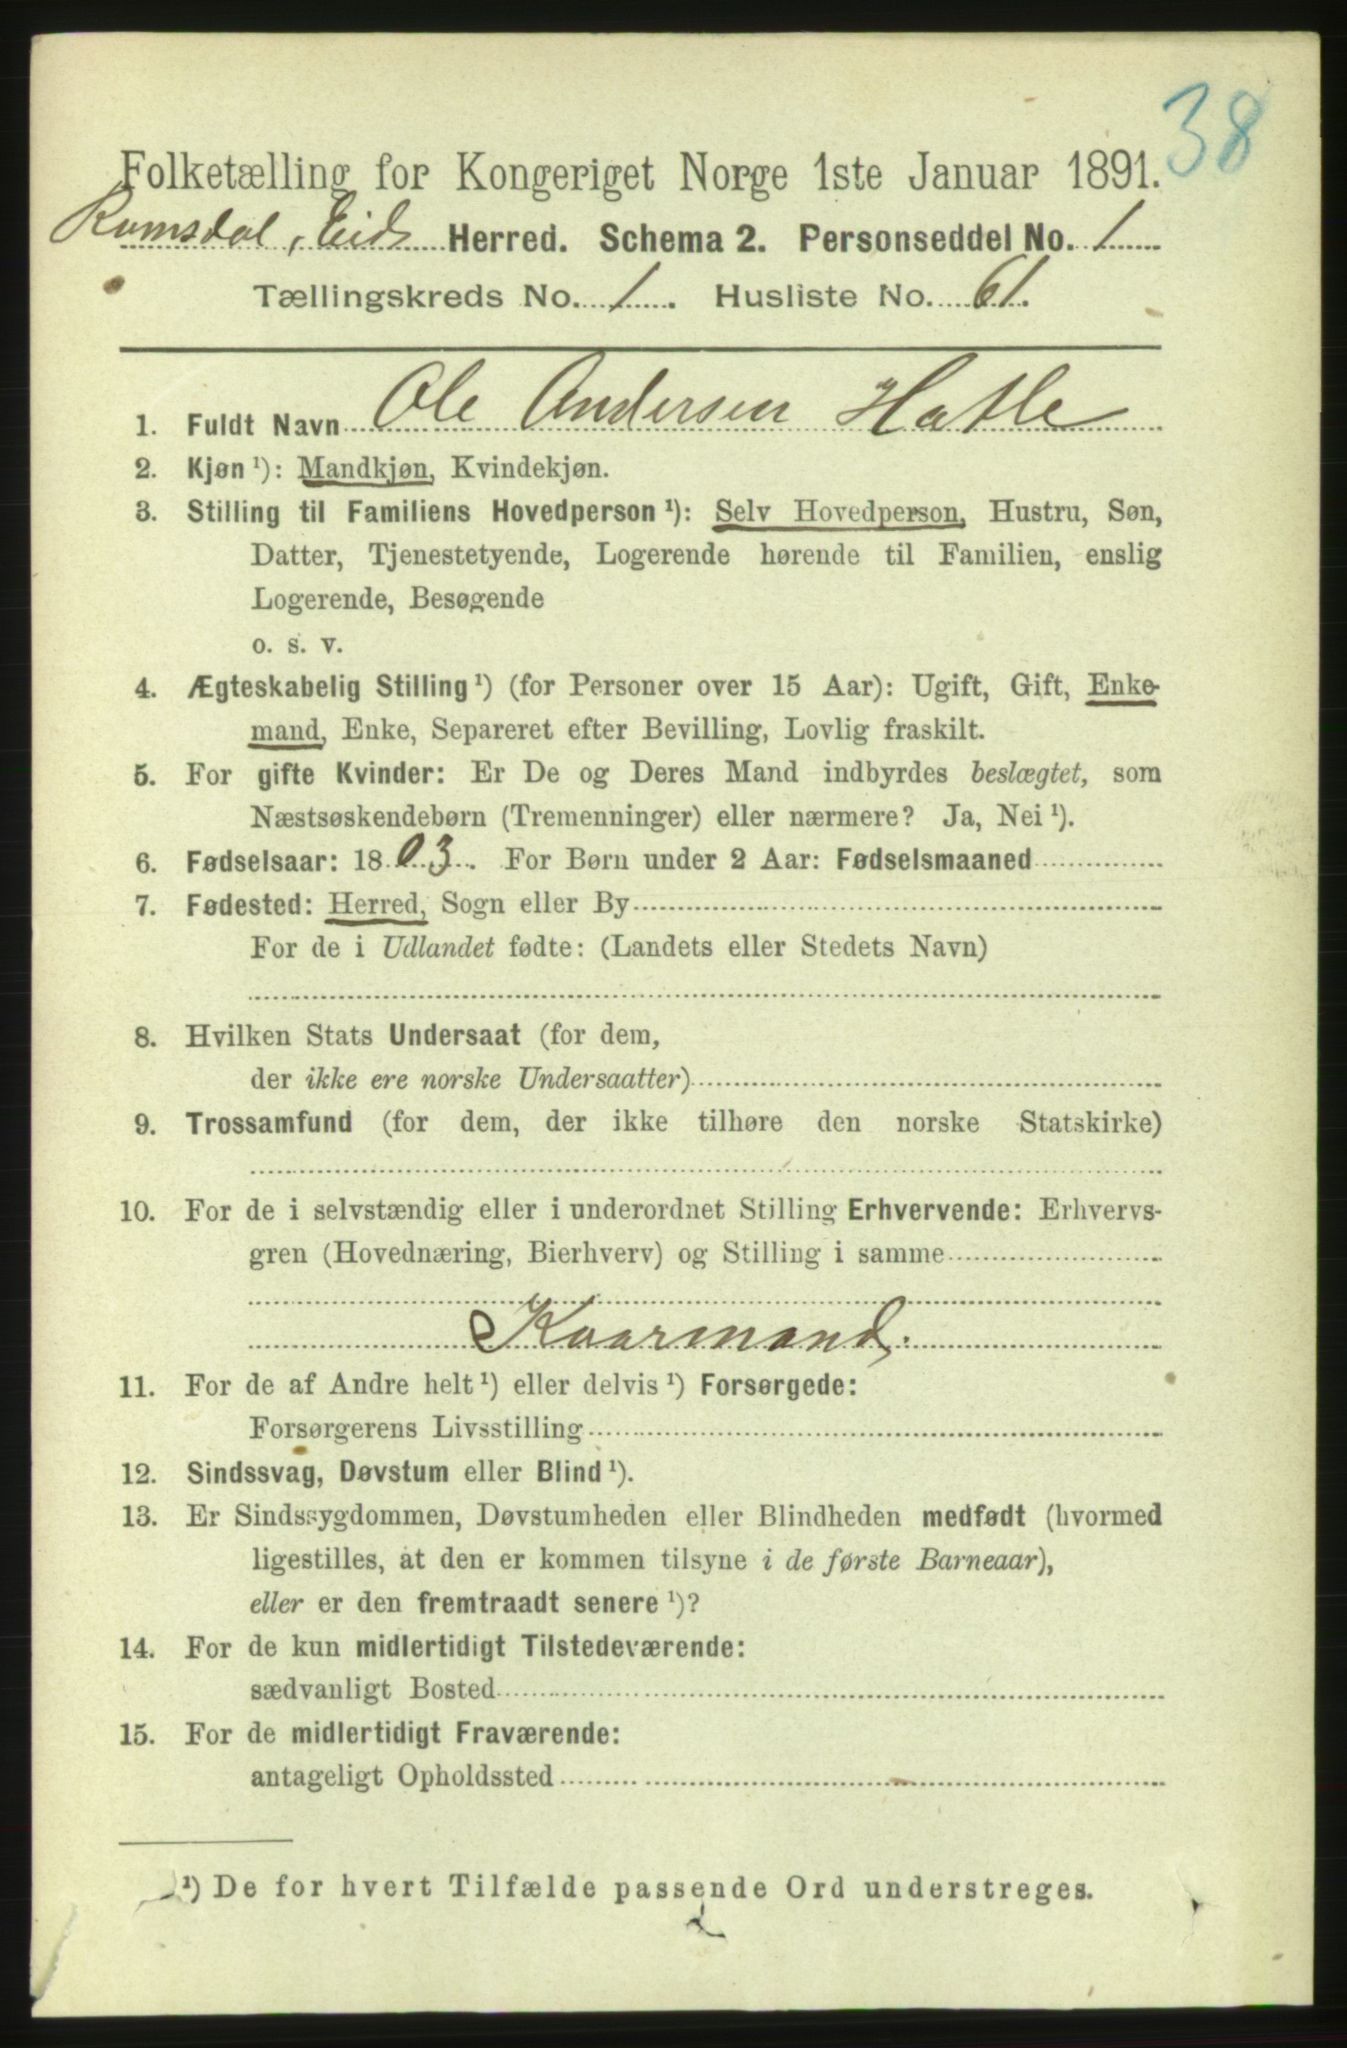 38
Folketælling for Kongeriget Norge 1ste Januar 1891.
Romsdal, Eid Herred. Schema 2. Personseddel No. 1
Tællingskreds No. 1. Husliste No. 61.
1. Fuldt Navn Ole Andersen Hatle
2. Kjøn ¹): Mandkjøn, Kvindekjøn.
3. Stilling til Familiens Hovedperson ¹): Selv Hovedperson, Hustru, Søn,
Datter, Tjenestetyende, Logerende hørende til Familien, enslig
Logerende, Besøgende
o. s. v.
4. Ægteskabelig Stilling ¹) (for Personer over 15 Aar): Ugift, Gift, Enke-
mand, Enke, Separeret efter Bevilling, Lovlig fraskilt.
5. For gifte Kvinder: Er De og Deres Mand indbyrdes beslægtet, som
Næstsøskendebørn (Tremenninger) eller nærmere? Ja, Nei ¹).
6. Fødselsaar: 1803. For Børn under 2 Aar: Fødselsmaaned
7. Fødested: Herred, Sogn eller By
For de i Udlandet fødte: (Landets eller Stedets Navn)
8. Hvilken Stats Undersaat (for dem,
der ikke ere norske Undersaatter)
9. Trossamfund (for dem, der ikke tilhøre den norske Statskirke)
10. For de i selvstændig eller i underordnet Stilling Erhvervende: Erhvervs-
gren (Hovednæring, Bierhverv) og Stilling i samme
Kaarmand.
11. For de af Andre helt ¹) eller delvis ¹) Forsørgede:
Forsørgerens Livsstilling
12. Sindssvag, Døvstum eller Blind ¹).
13. Er Sindssygdommen, Døvstumheden eller Blindheden medfødt (hvormed
ligestilles, at den er kommen tilsyne i de første Barneaar),
eller er den fremtraadt senere ¹)?
14. For de kun midlertidigt Tilstedeværende:
sædvanligt Bosted
15. For de midlertidigt Fraværende:
antageligt Opholdssted
¹) De for hvert Tilfælde passende Ord understreges.